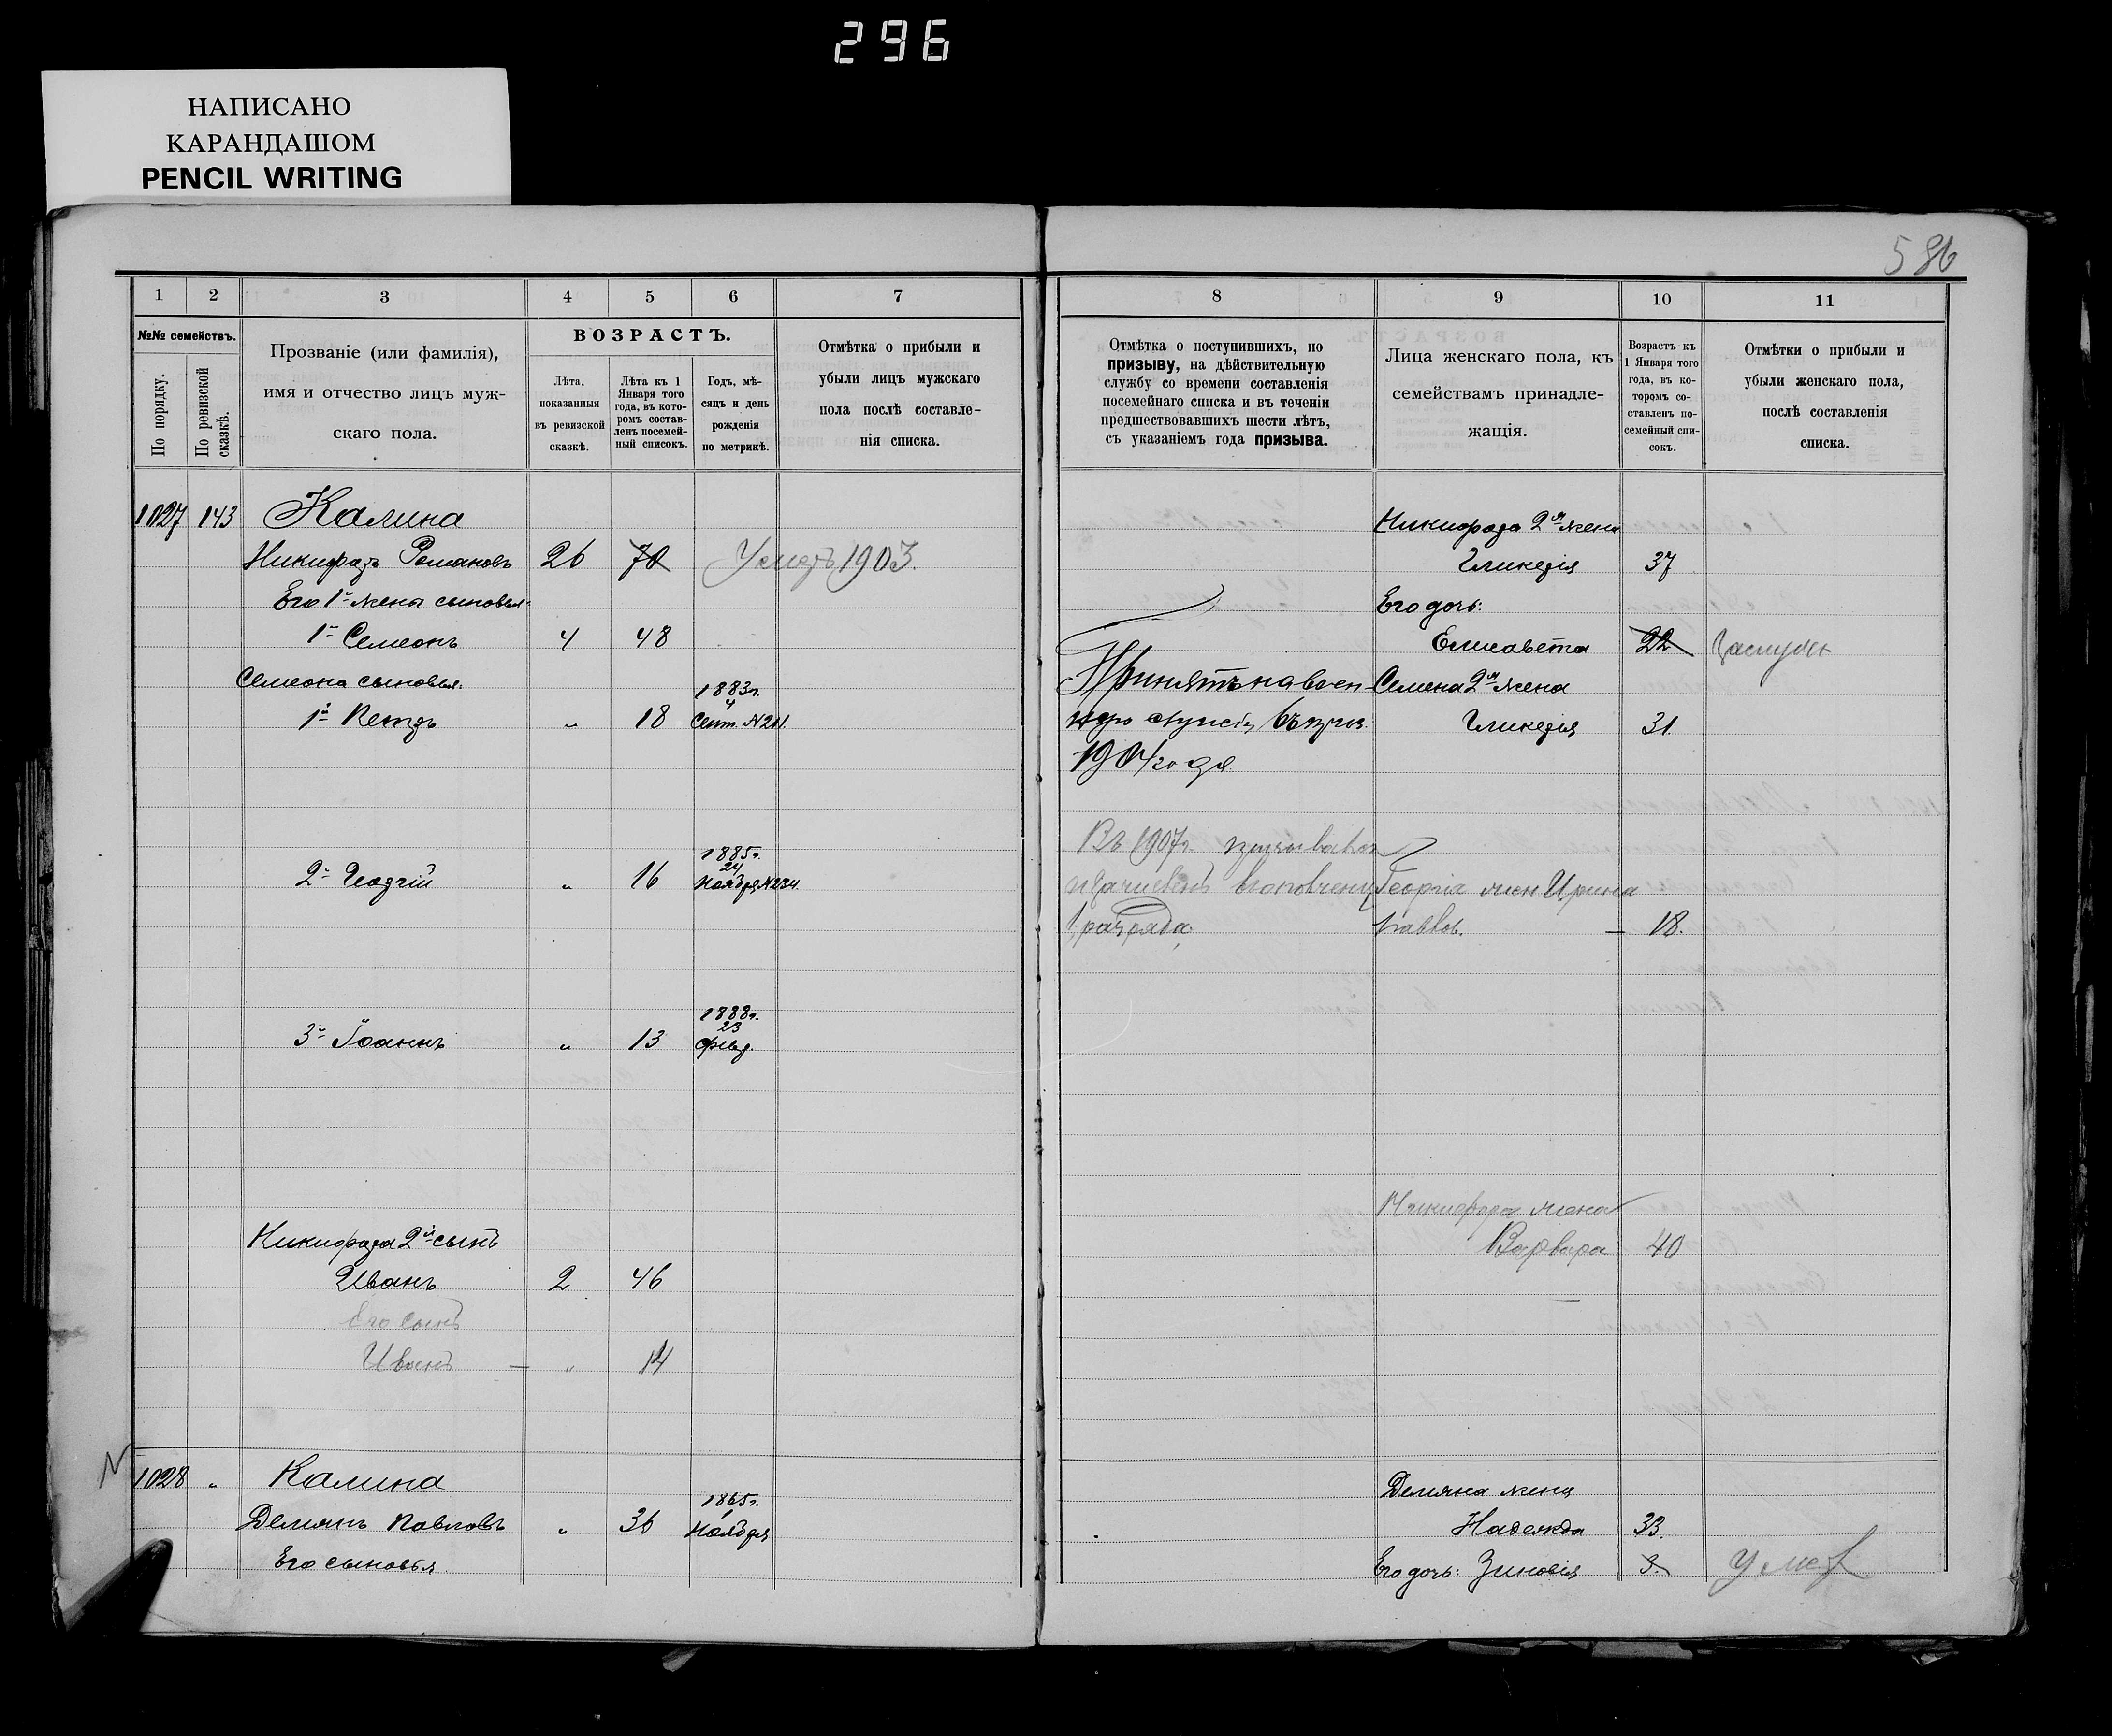 296
НАПИСАНО
КАРАНДАШОМ
PENCIL WRITING
586
1 2 3 4 5 6 7
№№ семействъ.
По порядку.
По ревизской сказкѣ.
Прозваніе (или фамилія),
имя и отчество лицъ муж-
скаго пола.
ВОЗРАСТЪ.
Лѣта,
показанныя
въ ревизской
сказкѣ.
Лѣта къ 1
Января того
года, въ кото-
ромъ состав-
ленъ посемей-
ный списокъ.
Годъ, мѣ-
сяцъ и день
рожденія
по метрикѣ.
Отмѣтка о прибыли и
убыли лицъ мужскаго
пола послѣ составле-
нія списка.
1027 143 Калина
Никифоръ Романовъ 26 70 Умеръ 1903.
Его 1й жены сыновья:
1й Семеонъ 4 48
Семеона сыновья:
1883г.
4
1й Петръ " 18 Сент. №211.
1885г.
24
2й Георгій " 16 Ноября №234.
1888г.
23
3й Іоаннъ " 13 Февр.
Никифора 2й сынъ
Иванъ 2 46
Его сынъ
Иванъ — " 14
1028 " Калина
1865г.
1
Демянъ Павловъ " 36 Ноября
Его сыновья
8 9 10 11
Отмѣтка о поступившихъ, по
призыву, на дѣйствительную
службу со времени составленія
посемейнаго списка и въ теченіи
предшествовавшихъ шести лѣтъ,
съ указаніемъ года призыва.
Лица женскаго пола, къ
семействамъ принадле-
жащія.
Возрастъ къ
1 Января того
года, въ ко-
торомъ со-
ставленъ по-
семейный спи-
сокъ.
Отмѣтки о прибыли и
убыли женскаго пола,
послѣ составленія
списка.
Никифора 2я жена
Гликерія 37
Его дочь:
Елисавета 22 Замужем
Принятъ на воен- Семена 2я жена
ную службу въ призыв Гликерія 31.
1904 года
Въ 1907г.
зачисленъ в ополченіе Георгія жен Ирина
1 разряда. Павлов. — 18.
Никифора жена
Варвара 40
Демяна жена
Надежда 33.
Его дочь: Зиновія 3. Умер